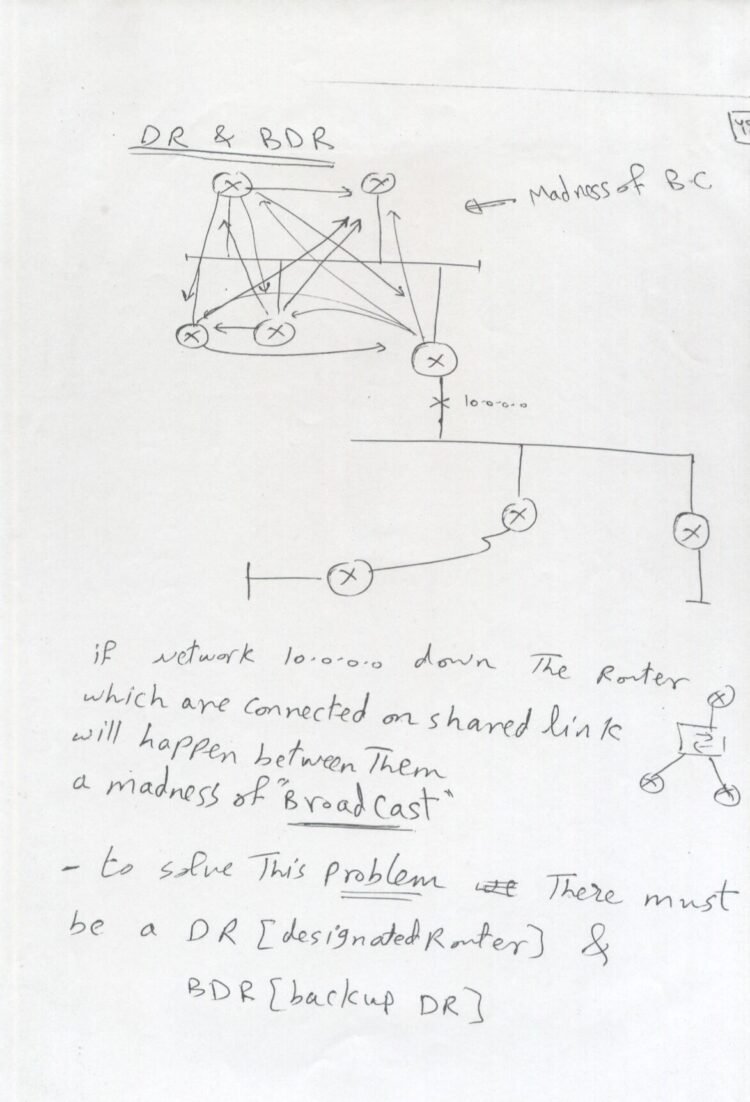 DR & BDR
Madness of B.C
10.0.0.0
if network 10.0.0.0 down The Router
which are connected on shared link
will happen between Them
a madness of "BroadCast"
- to solve This problem There must
be a DR [designated Router] &
BDR [backup DR]